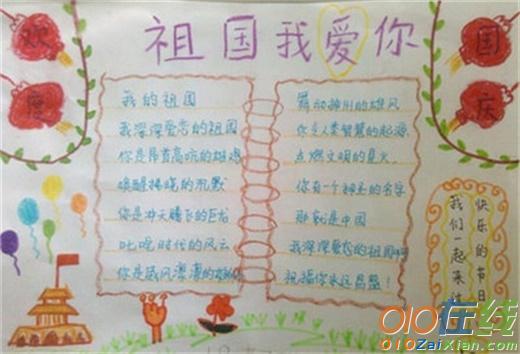 祖国我爱你
欢度
国庆
我的祖国
我深深爱恋的祖国
你是昂首高吭的雄鸡
唤醒拂晓的沉默
你是冲天腾飞的巨龙
叱咤时代的风云
你是威风凛凛的
舞动神州的雄风
你是人类智慧的起源
点燃文明的星火。
你有一个神圣的名字
那就是中国
我深深爱恋的祖国啊
祝福你永远昌盛！
快乐的节日
我们一起来
010在线
010ZaiXian.com